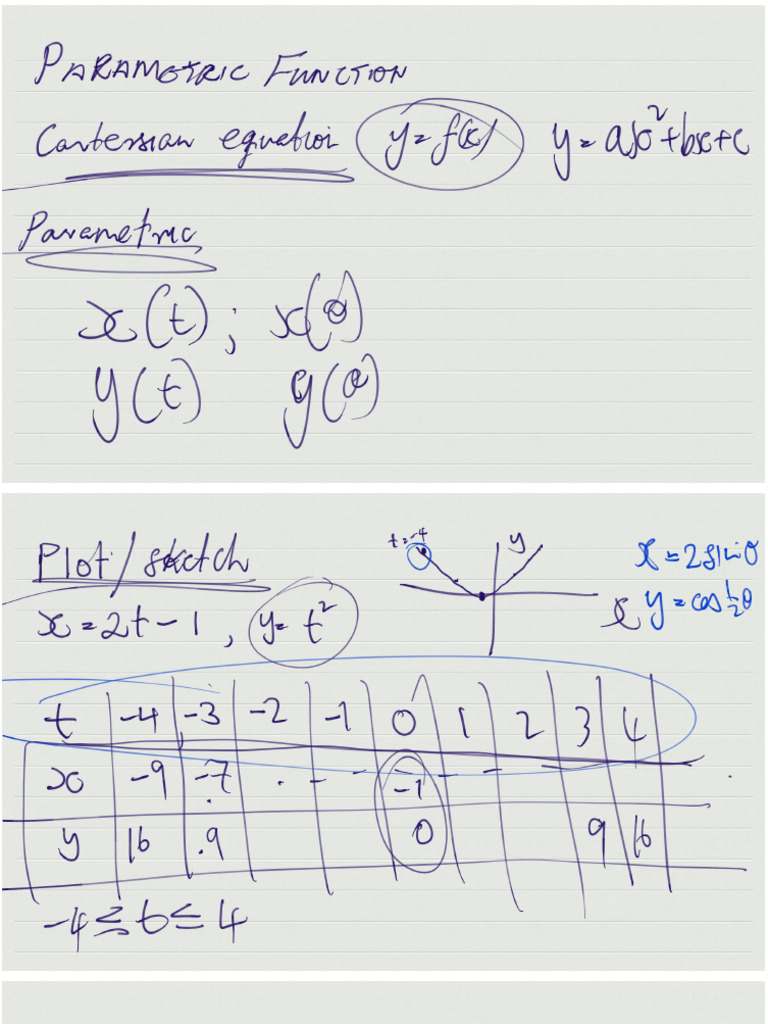 PARAMETRIC FUNCTION
Cartessian equation y=f(x) y=ax²+bx+c
Parametric
x(t); x(θ)
y(t) y(θ)
Plot/sketch t=-4 y x x=2sinθ
x=2t-1, y=t² y=cos½θ
t -4 -3 -2 -1 0 1 2 3 4
x -9 -7 . - - -1 - -
y 16 .9 0 9 16
-4≤t≤4